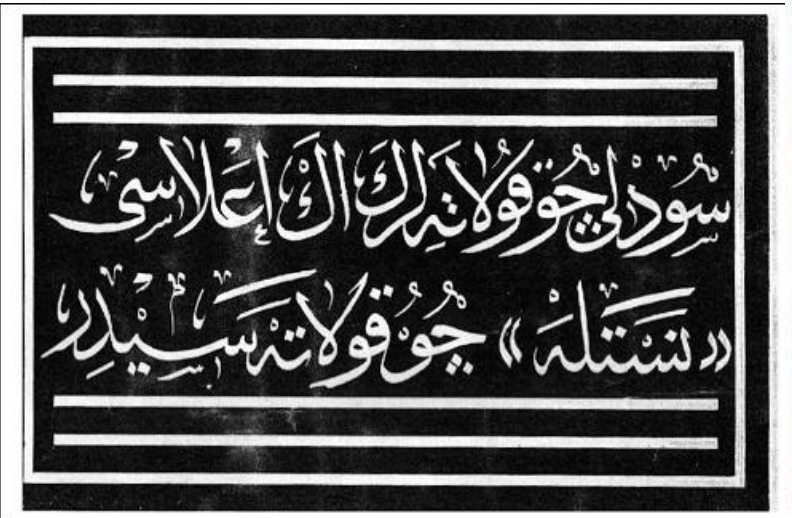 سودلی چوقولاتەلرك اك إعلاسی
«نستله» چوقولاته سیدر